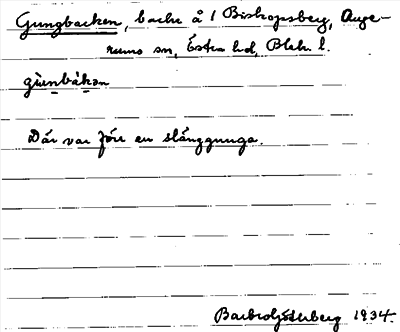 Gungbacken, backe å 1 Biskopsberg, Auge-
rums sn, Östra hd, Blek. l.
gùŋbàkən
Där var förr en slänggunga.
Barbro Söderberg 1934.